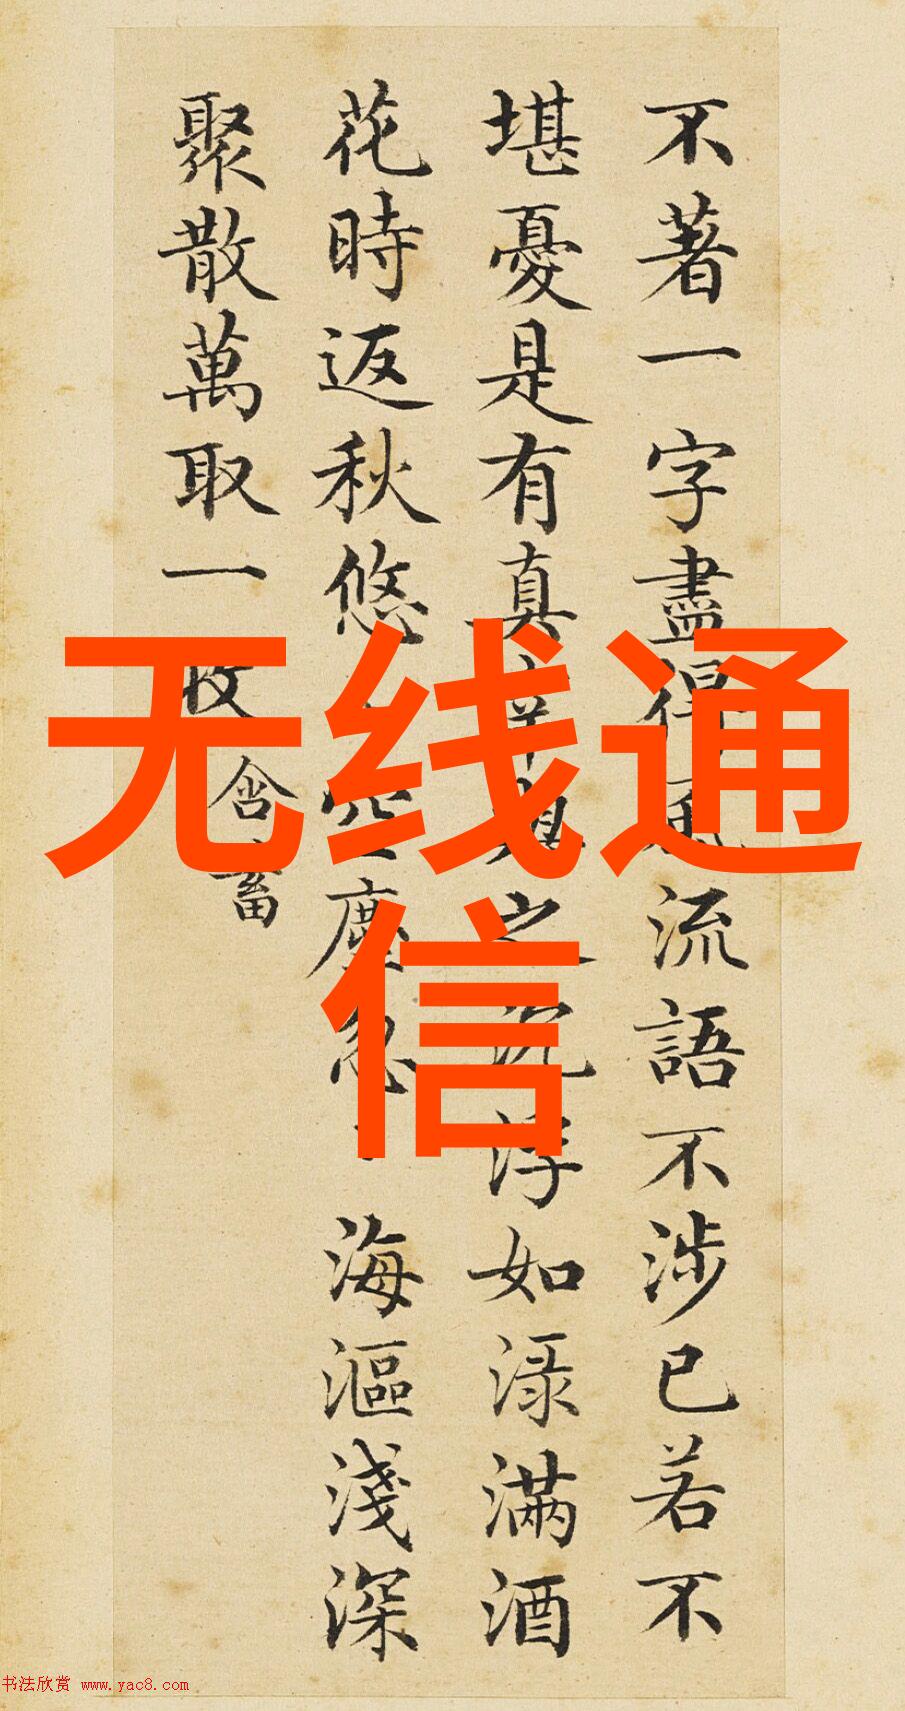 不著一字盡得風流語不涉已若不
堪憂是有真之沉浮如淥滿酒
花時返秋悠空塵忽海漚淺深
聚散萬取一收含蓄
无线通
信
书法欣赏 www.yac8.com